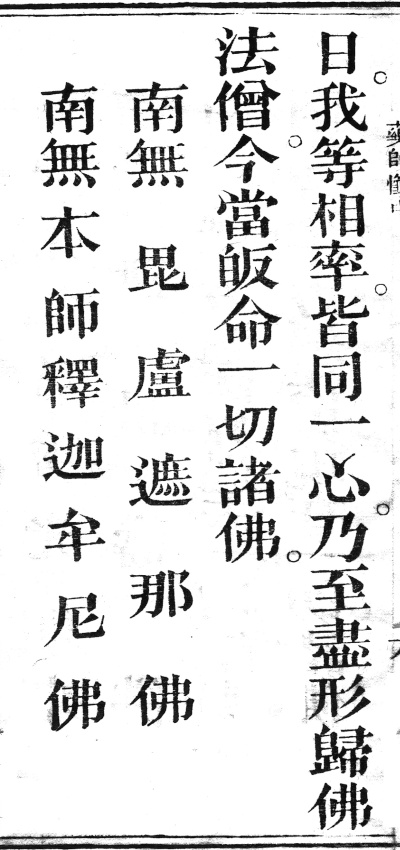 藥師懺
日我等相率皆同一心乃至盡形歸佛
法僧今當皈命一切諸佛
南無毘盧遮那佛
南無本師釋迦牟尼佛